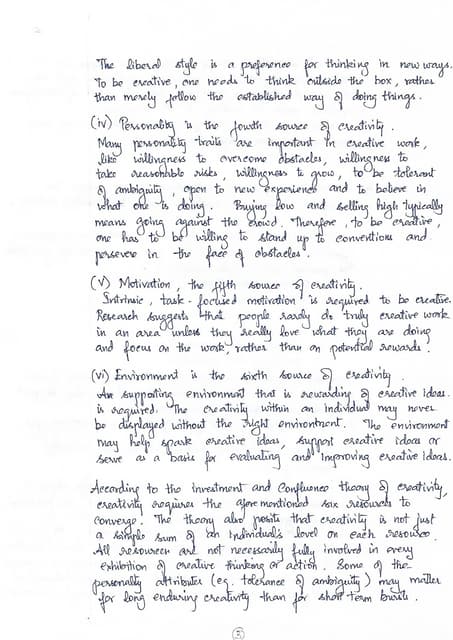 The liberal style is a preference for thinking in new ways.
To be creative, one needs to think outside the box, rather
than merely follow the established way of doing things.
(iv) Personality is the fourth source of creativity.
Many personality traits are important in creative work,
like willingness to overcome obstacles, willingness to
take reasonable risks, willingness to grow, to be tolerant
of ambiguity, open to new experience and to believe in
what one is doing. Buying low and selling high typically
means going against the crowd. Therefore, to be creative,
one has to be willing to stand up to conventions and
persevere in the face of obstacles.
(v) Motivation, the fifth source of creativity.
Intrinsic, task-focused motivation is required to be creative.
Research suggests that people rarely do truly creative work
in an area unless they really love what they are doing
and focus on the work, rather than on potential rewards.
(vi) Environment is the sixth source of creativity.
An supporting environment that is rewarding of creative ideas.
is required. The creativity within an individual may never
be displayed without the right environment. The environment
may help spark creative ideas, support creative ideas or
serve as a basis for evaluating and improving creative ideas.
According to the investment and Confluence theory of creativity,
creativity requires the aforementioned six resources to
converge. The theory also posits that creativity is not just
a simple sum of an individual's level on each resource.
All resources are not necessarily fully involved in every
exhibition of creative thinking or action. Some of the
personality attributes (eg. tolerance of ambiguity) may matter
for long enduring creativity than for short term bursts.